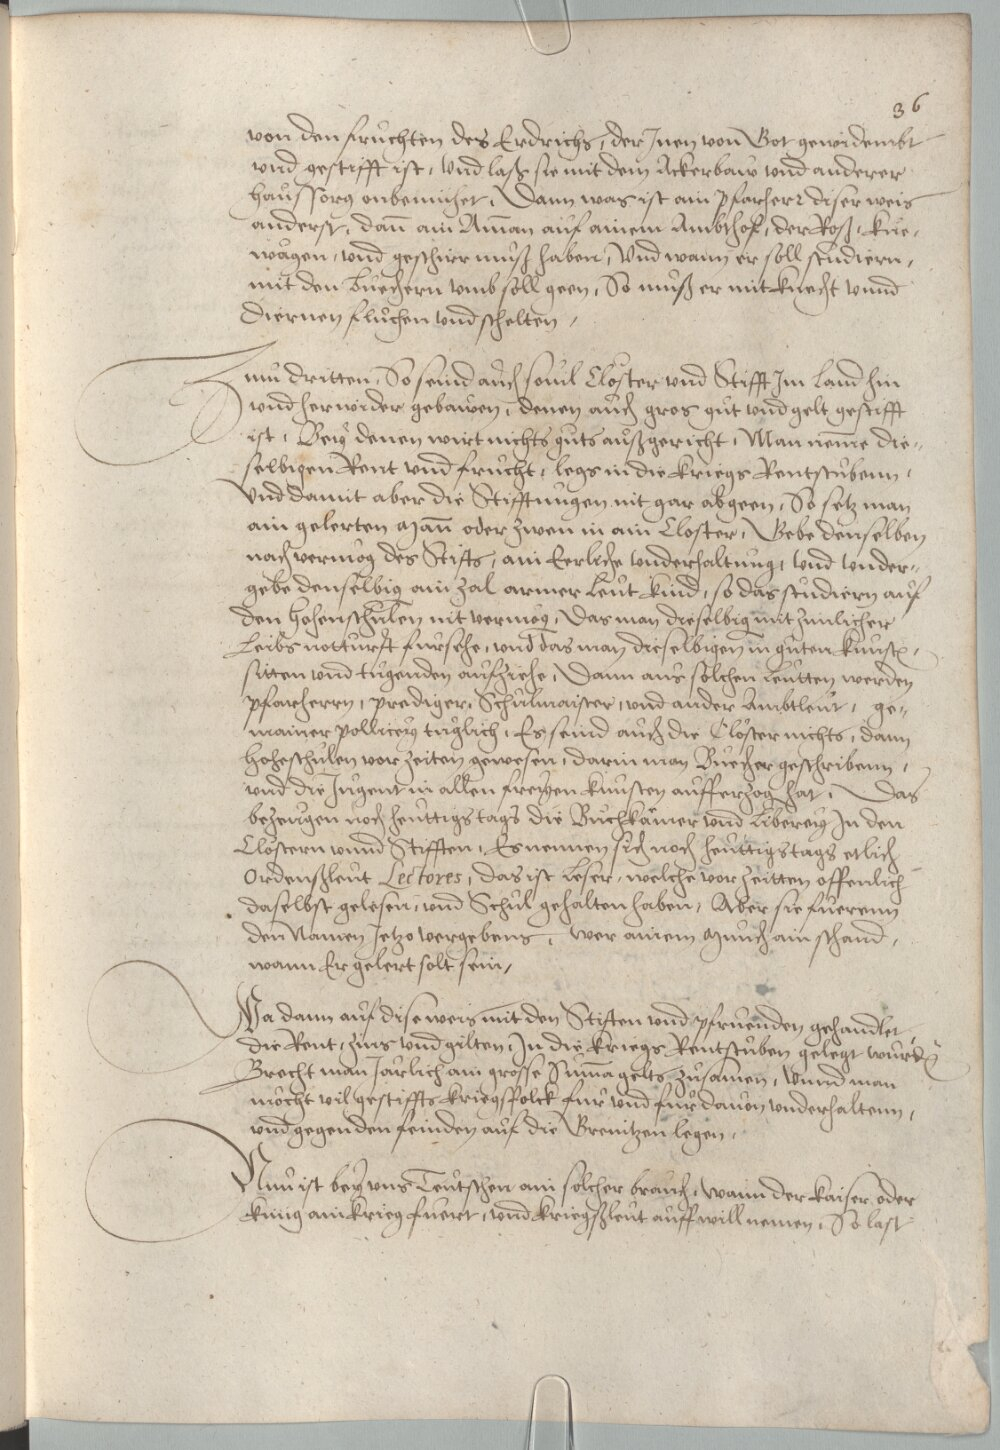 36
von den früchten des Erdrichs, der Inen von Got gewidembt
vnd gestifft ist, vnd laß sie mit dem Ackerbaw vnd anderer
haussorg onbemühet, Dann was ist ain Pfarherr diser weis
anderst, dann ain Amman auf ainem Ambthof, der Roß, Küe,
wägen, vnd geschirr muß haben, Vnd wann er soll studiern,
mit den Buechern vmb soll geen, So muß er mit knecht vnnd
Diernen fluchen vnd schelten,
Zum dritten, So seind auch souil Clöster vnd Stifft Im Land hin
vnd herwider gebawen, denen auch gros gut vnd gelt gestifft
ist, Bey denen wirt nichts guts außgericht, Man neme die-
selbigen Rent vnd frucht, legs in die kriegs Rentstubenn,
Vnd damit aber die Stifftungen nit gar abgeen, So setz man
ain gelerten Mann oder zwen in ain Closter, Gebe denselben
nach vermög des Stifts, ain Eerliche vnderhaltung, vnd vnder-
gebe denselbig ain zal armer Leut kind, so das studiern auf
den Hohenschulen nit vermög, Das man dieselbig mit zimlicher
Leibs notturft fürsehe, vnd das man dieselbigen in guten kunst,
sitten vnd tugenden aufziehe, Dann aus solchen Leutten werden
Pfarherrn, Prediger, Schulmaister, vnd ander Ambtleut, ge-
mainer Pollicey tuglich, Es seind auch die Clöster nichts, dann
Hoheschulen vor zeiten gewesen, darin man Buecher geschribenn,
vnd die Jugent in allen freyen kunsten aufferzog hat, Das
bezeugen noch heuttigs tags die Buchkamer vnd Liberey In den
Clöstern vnnd Stifften, Es nennen sich noch heuttigs tags etlich
Ordenßleut Lectores, das ist Leser, welche vor zeitten offenlich
daselbst gelesen, vnd Schul gehalten haben, Aber sie fuerenn
den Namen Jetzo vergebens, wer ainem Munch ain schand,
wann Er gelert solt sein,
Da dann auf dise weis mit den Stiften vnd Pfruenden gehandlet,
die Rent, zins vnd gilten, In die kriegs Rentstuben gelegt wurd,
Brecht man Järlich ain grosse Suma gelts zusamen, Vnnd man
mocht vil gestiffts kriegsfolck für vnd für dauon vnderhaltenn,
vnd gegen den feinden auf die Grenitzen legen,
Nun ist bey vns Teutschen ain solcher brauch, wann der kaiser oder
kunig ain krieg fuert, vnd kriegßleut auff will nemen, So last